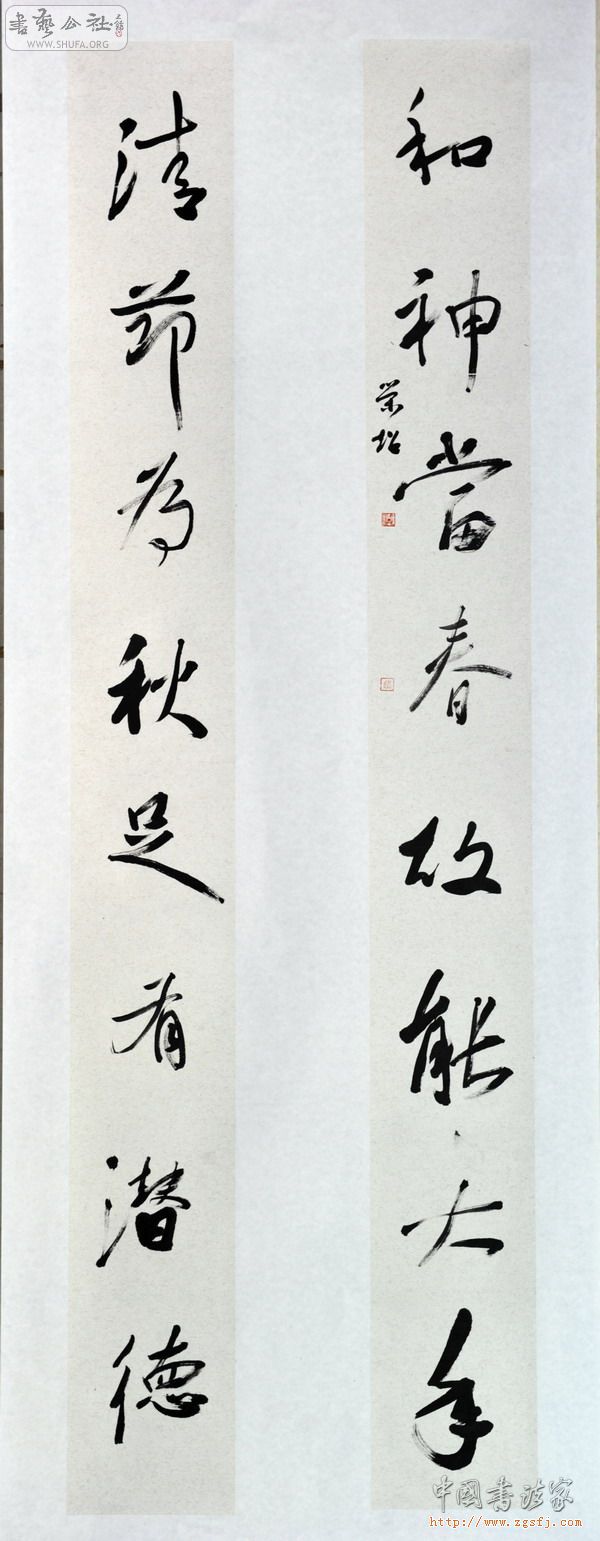 書藝公社
WWW.SHUFA.ORG
和神當春故能大年
清節為秋足有潜德
中國書法家
http://www.zgsfj.com